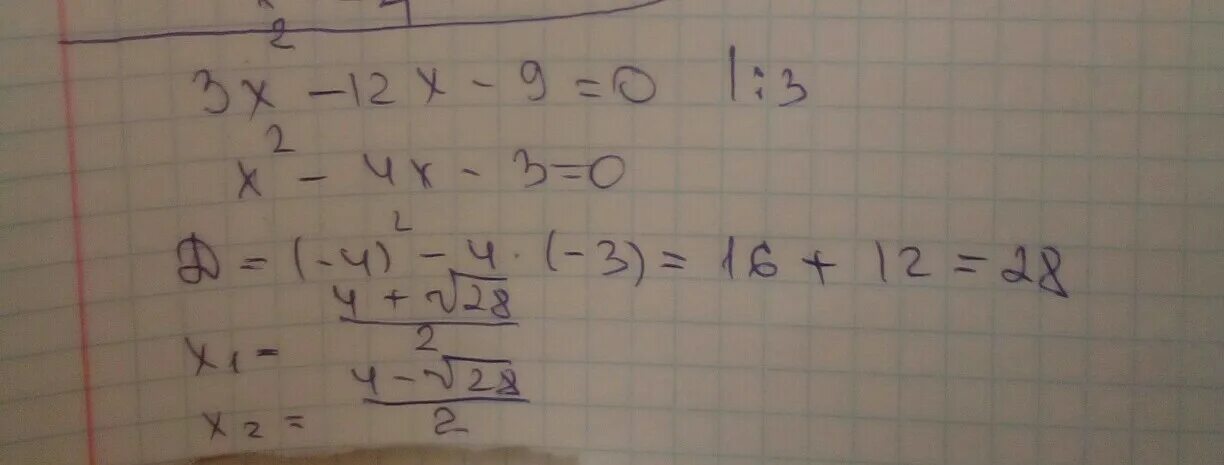 3x² - 12x - 9 = 0 | : 3
x² - 4x - 3 = 0
D = (-4)² - 4 · (-3) = 16 + 12 = 28
x₁ = (4 + √28)/2
x₂ = (4 - √28)/2